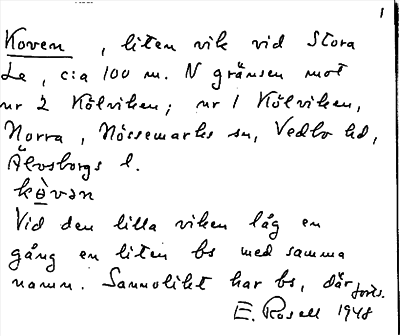 1
Koven, liten vik vid Stora
Le, c:a 100 m. N gränsen mot
nr 2 Kölviken; nr 1 Kölviken,
Norra, Nössemarks sn, Vedbo hd,
Älvsborgs l.
kòvan
Vid den lilla viken låg en
gång en liten bs med samma
namn. Sannolikt har bs, där
forts.
E. Rosell 1948